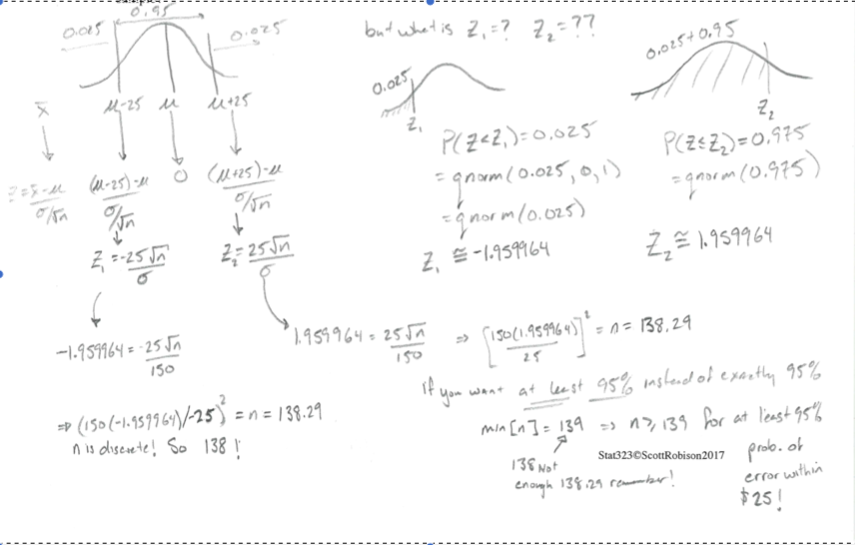 sample.
0.95
0.025
0.025
μ-25 μ μ+25
x̄
z = x̄-μ / σ/√n
(μ-25)-μ / σ/√n
0
(μ+25)-μ / σ/√n
Z₁ = -25√n / σ
Z₂ = 25√n / σ
-1.959964 = -25√n / 150
⇒ (150(-1.959964)/-25)² = n = 138.29
n is discrete! So 138!
but what is Z₁=? Z₂=??
0.025
Z₁
P(Z<Z₁)=0.025
= qnorm(0.025, 0, 1)
= qnorm(0.025)
Z₁ ≅ -1.959964
0.025+0.95
Z₂
P(Z≤Z₂)=0.975
= qnorm(0.975)
Z₂ ≅ 1.959964
1.959964 = 25√n / 150 ⇒ [150(1.959964) / 25]² = n = 138.29
If you want at least 95% instead of exactly 95%
min[n] = 139 ⇒ n ≥ 139 for at least 95%
prob. of
error within
$25!
138 Not
enough 138.29 remember!
Stat323©ScottRobison2017